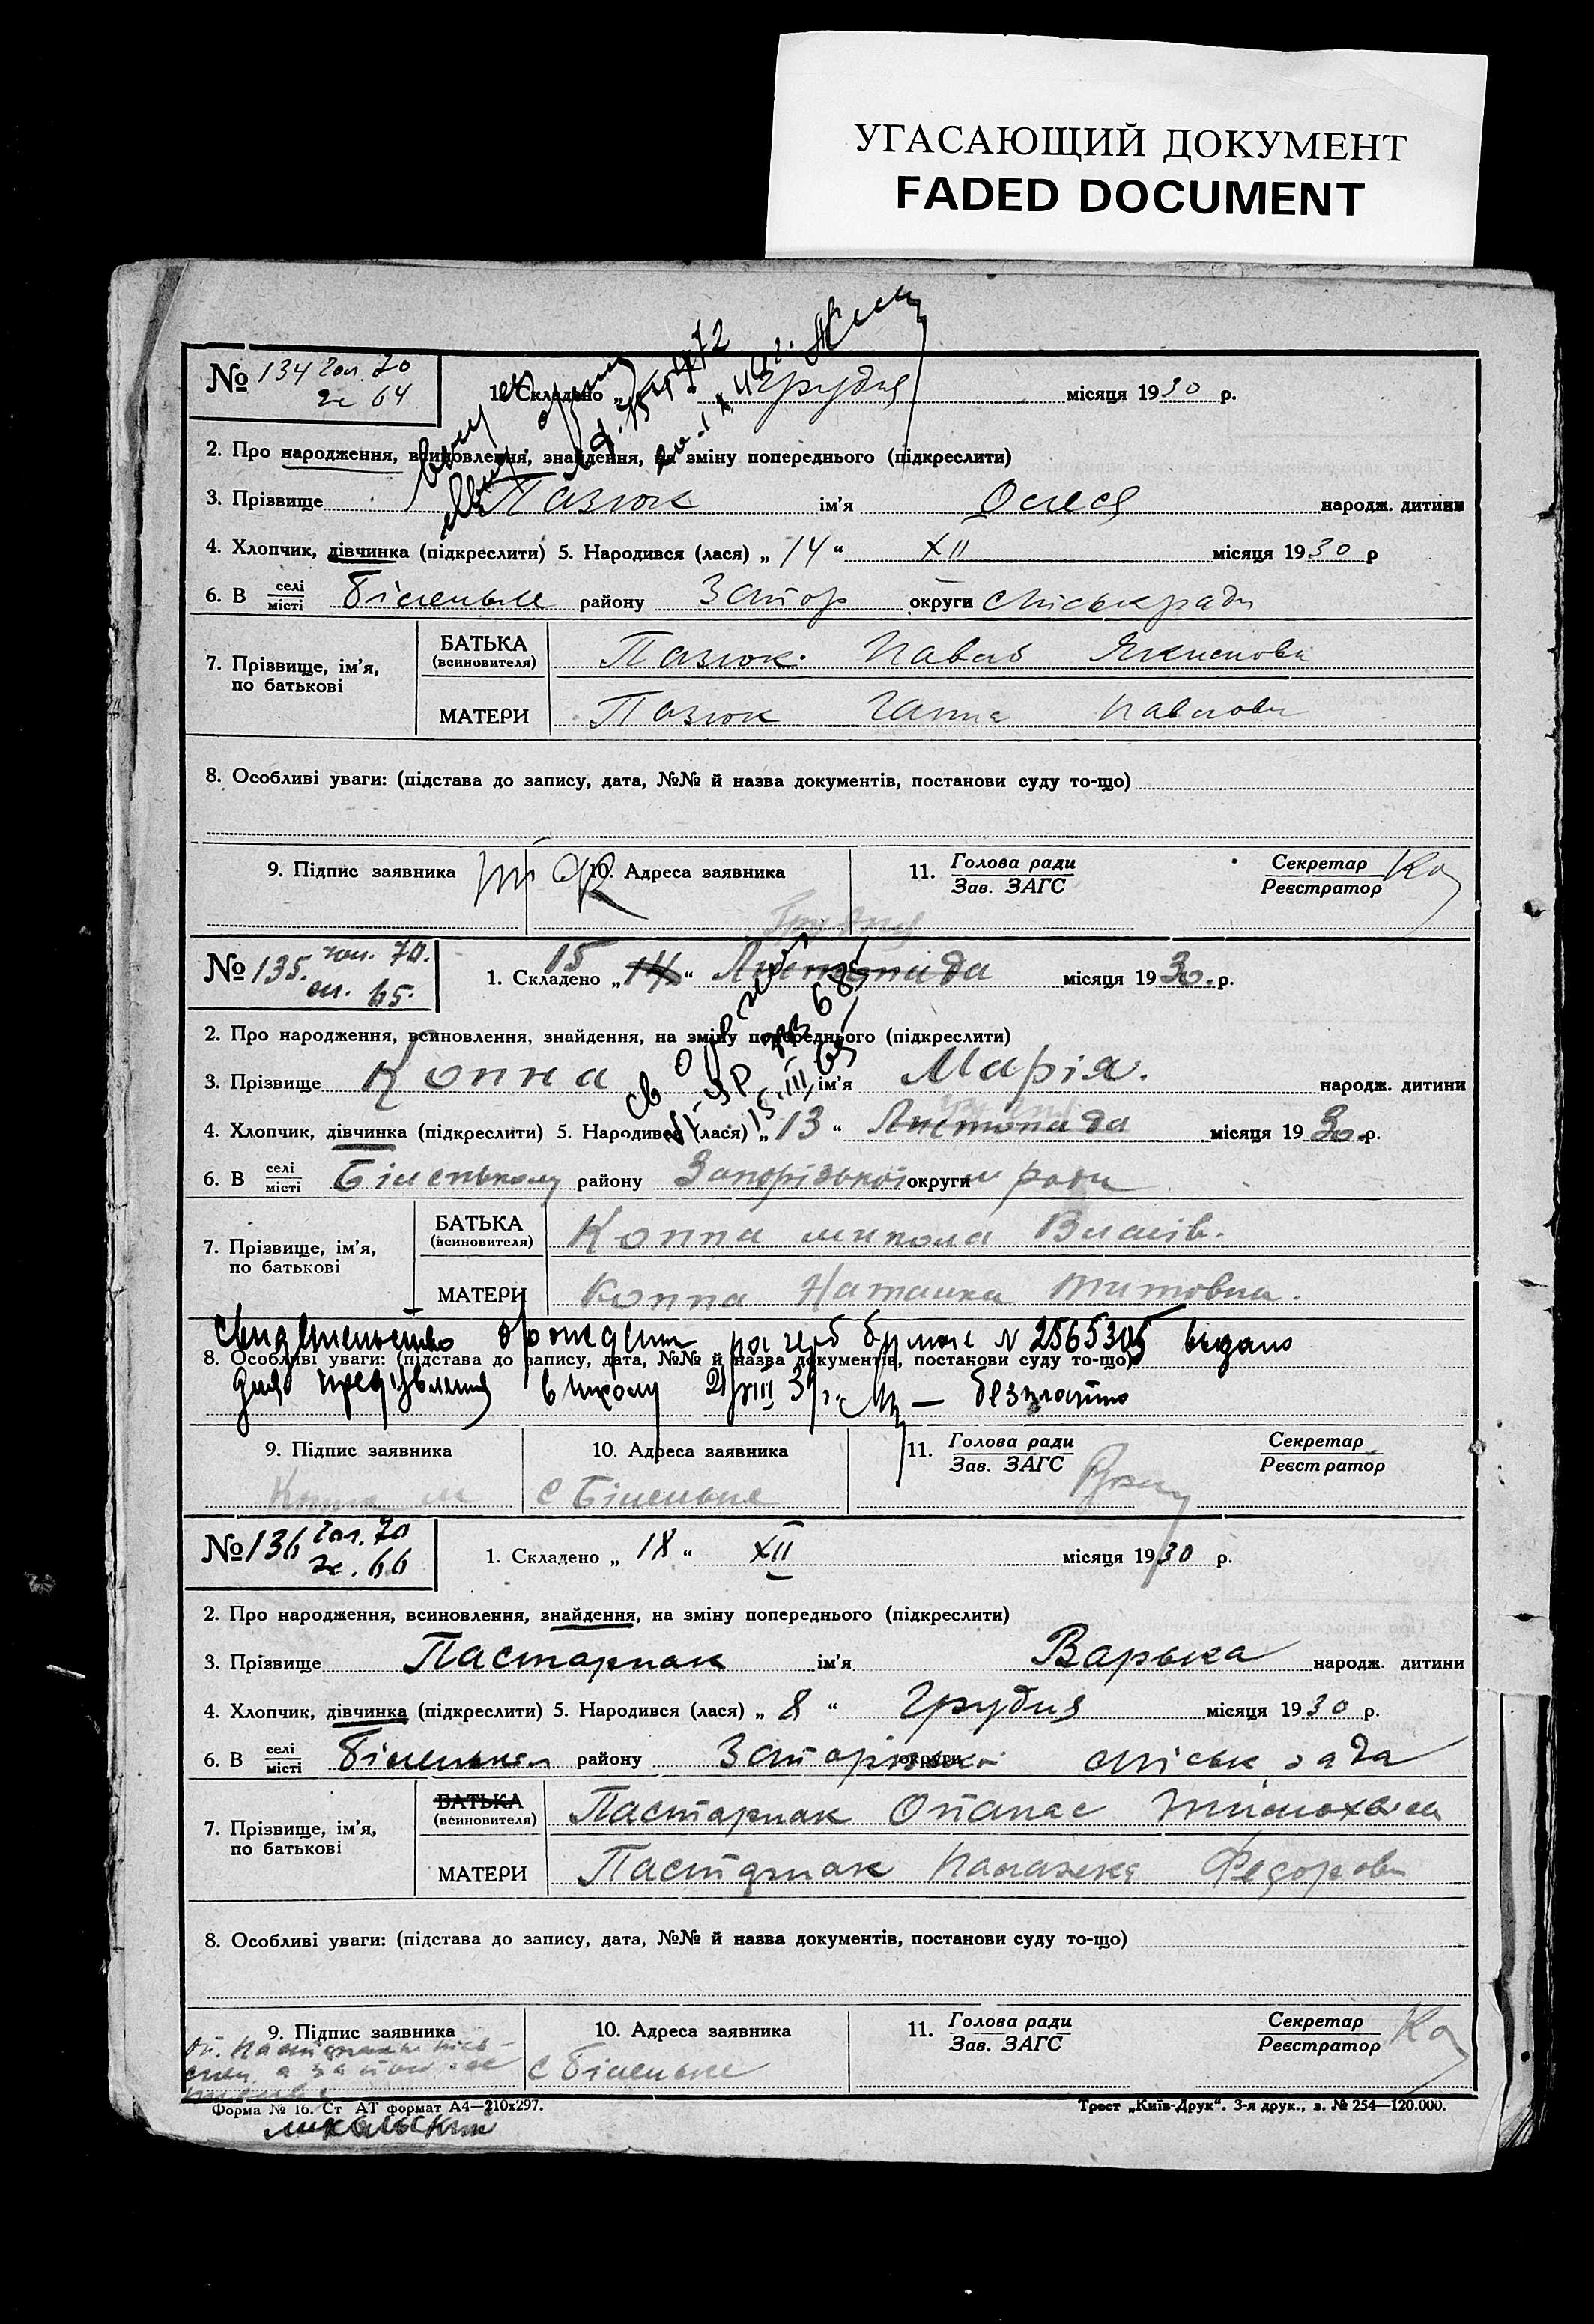 УГАСАЮЩИЙ ДОКУМЕНТ
FADED DOCUMENT
№ 134 чол. 70
ж 64
1. Складено „ “ Грудня місяця 1930 р.
2. Про народження, всиновлення, знайдення, на зміну попереднього (підкреслити)
3. Прізвище Пазюк ім’я Олеся народж. дитини
4. Хлопчик, дівчинка (підкреслити) 5. Народився (лася) „ 14 “ XII місяця 1930 р
6. В селі місті Біленьке району Запор округи міськради
7. Прізвище, ім’я, по батькові
БАТЬКА (всиновителя) Пазюк Павло
МАТЕРИ Пазюк Ганна Павлов
8. Особливі уваги: (підстава до запису, дата, №№ й назва документів, постанови суду то-що)
9. Підпис заявника
10. Адреса заявника
11. Голова ради Зав. ЗАГС
Секретар Реєстратор
№ 135. чол. 70.
65.
1. Складено „ 15 14 “ Листопада місяця 1930. р.
2. Про народження, всиновлення, знайдення, на зміну попереднього (підкреслити)
3. Прізвище Коппа ім’я Марія. народж. дитини
4. Хлопчик, дівчинка (підкреслити) 5. Народився (лася) „ 13 “ Листопада місяця 1930. р.
6. В селі місті Біленькому району Запорізької округи м ради
7. Прізвище, ім’я, по батькові
БАТЬКА (всиновителя) Коппа Микола
МАТЕРИ Коппа Наталка Титовна.
Свидетельство о рождении на герб бумаге N 2565305 выдано
8. Особливі уваги: (підстава до запису, дата, №№ й назва документів, постанови суду то-що)
для предъявления в школу 21/VIII 39 г. — безплатно
9. Підпис заявника
10. Адреса заявника
11. Голова ради Зав. ЗАГС
Секретар Реєстратор
Коппа М с Біленьке
№ 136 чол. 70
ж. 66
1. Складено „ 18 “ XII місяця 1930 р.
2. Про народження, всиновлення, знайдення, на зміну попереднього (підкреслити)
3. Прізвище Пастарнак ім’я Варька народж. дитини
4. Хлопчик, дівчинка (підкреслити) 5. Народився (лася) „ 8 “ Грудня місяця 1930 р.
6. В селі місті Біленьком району Запорізької округи міськ рада
7. Прізвище, ім’я, по батькові
БАТЬКА (всиновителя) Пастарнак Опанас
МАТЕРИ Пастарнак Палажка Федоров
8. Особливі уваги: (підстава до запису, дата, №№ й назва документів, постанови суду то-що)
9. Підпис заявника
10. Адреса заявника
11. Голова ради Зав. ЗАГС
Секретар Реєстратор
с Біленьке
Форма № 16. Ст АТ формат А4—210х297.
Трест „Київ-Друк“. 3-я друк., з. № 254—120.000.